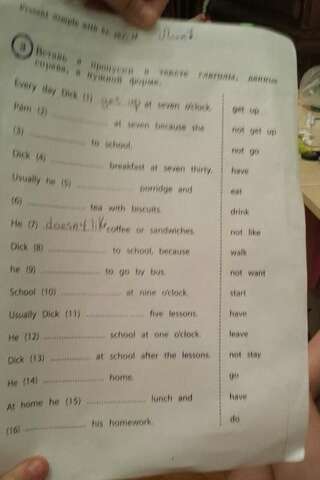 Present simple with he, she, it
3 Вставь в пропуски в тексте глаголы, данные
справа, в нужной форме.
Every day Dick (1) get up at seven o'clock. get up
Pam (2) .................. at seven because she not get up
(3) .................. to school. not go
Dick (4) .................. breakfast at seven thirty. have
Usually he (5) .................. porridge and eat
(6) .................. tea with biscuits. drink
He (7) doesn't like coffee or sandwiches. not like
Dick (8) .................. to school, because walk
he (9) .................. to go by bus. not want
School (10) .................. at nine o'clock. start
Usually Dick (11) .................. five lessons. have
He (12) .................. school at one o'clock. leave
Dick (13) .................. at school after the lessons. not stay
He (14) .................. home. go
At home he (15) .................. lunch and have
(16) .................. his homework. do